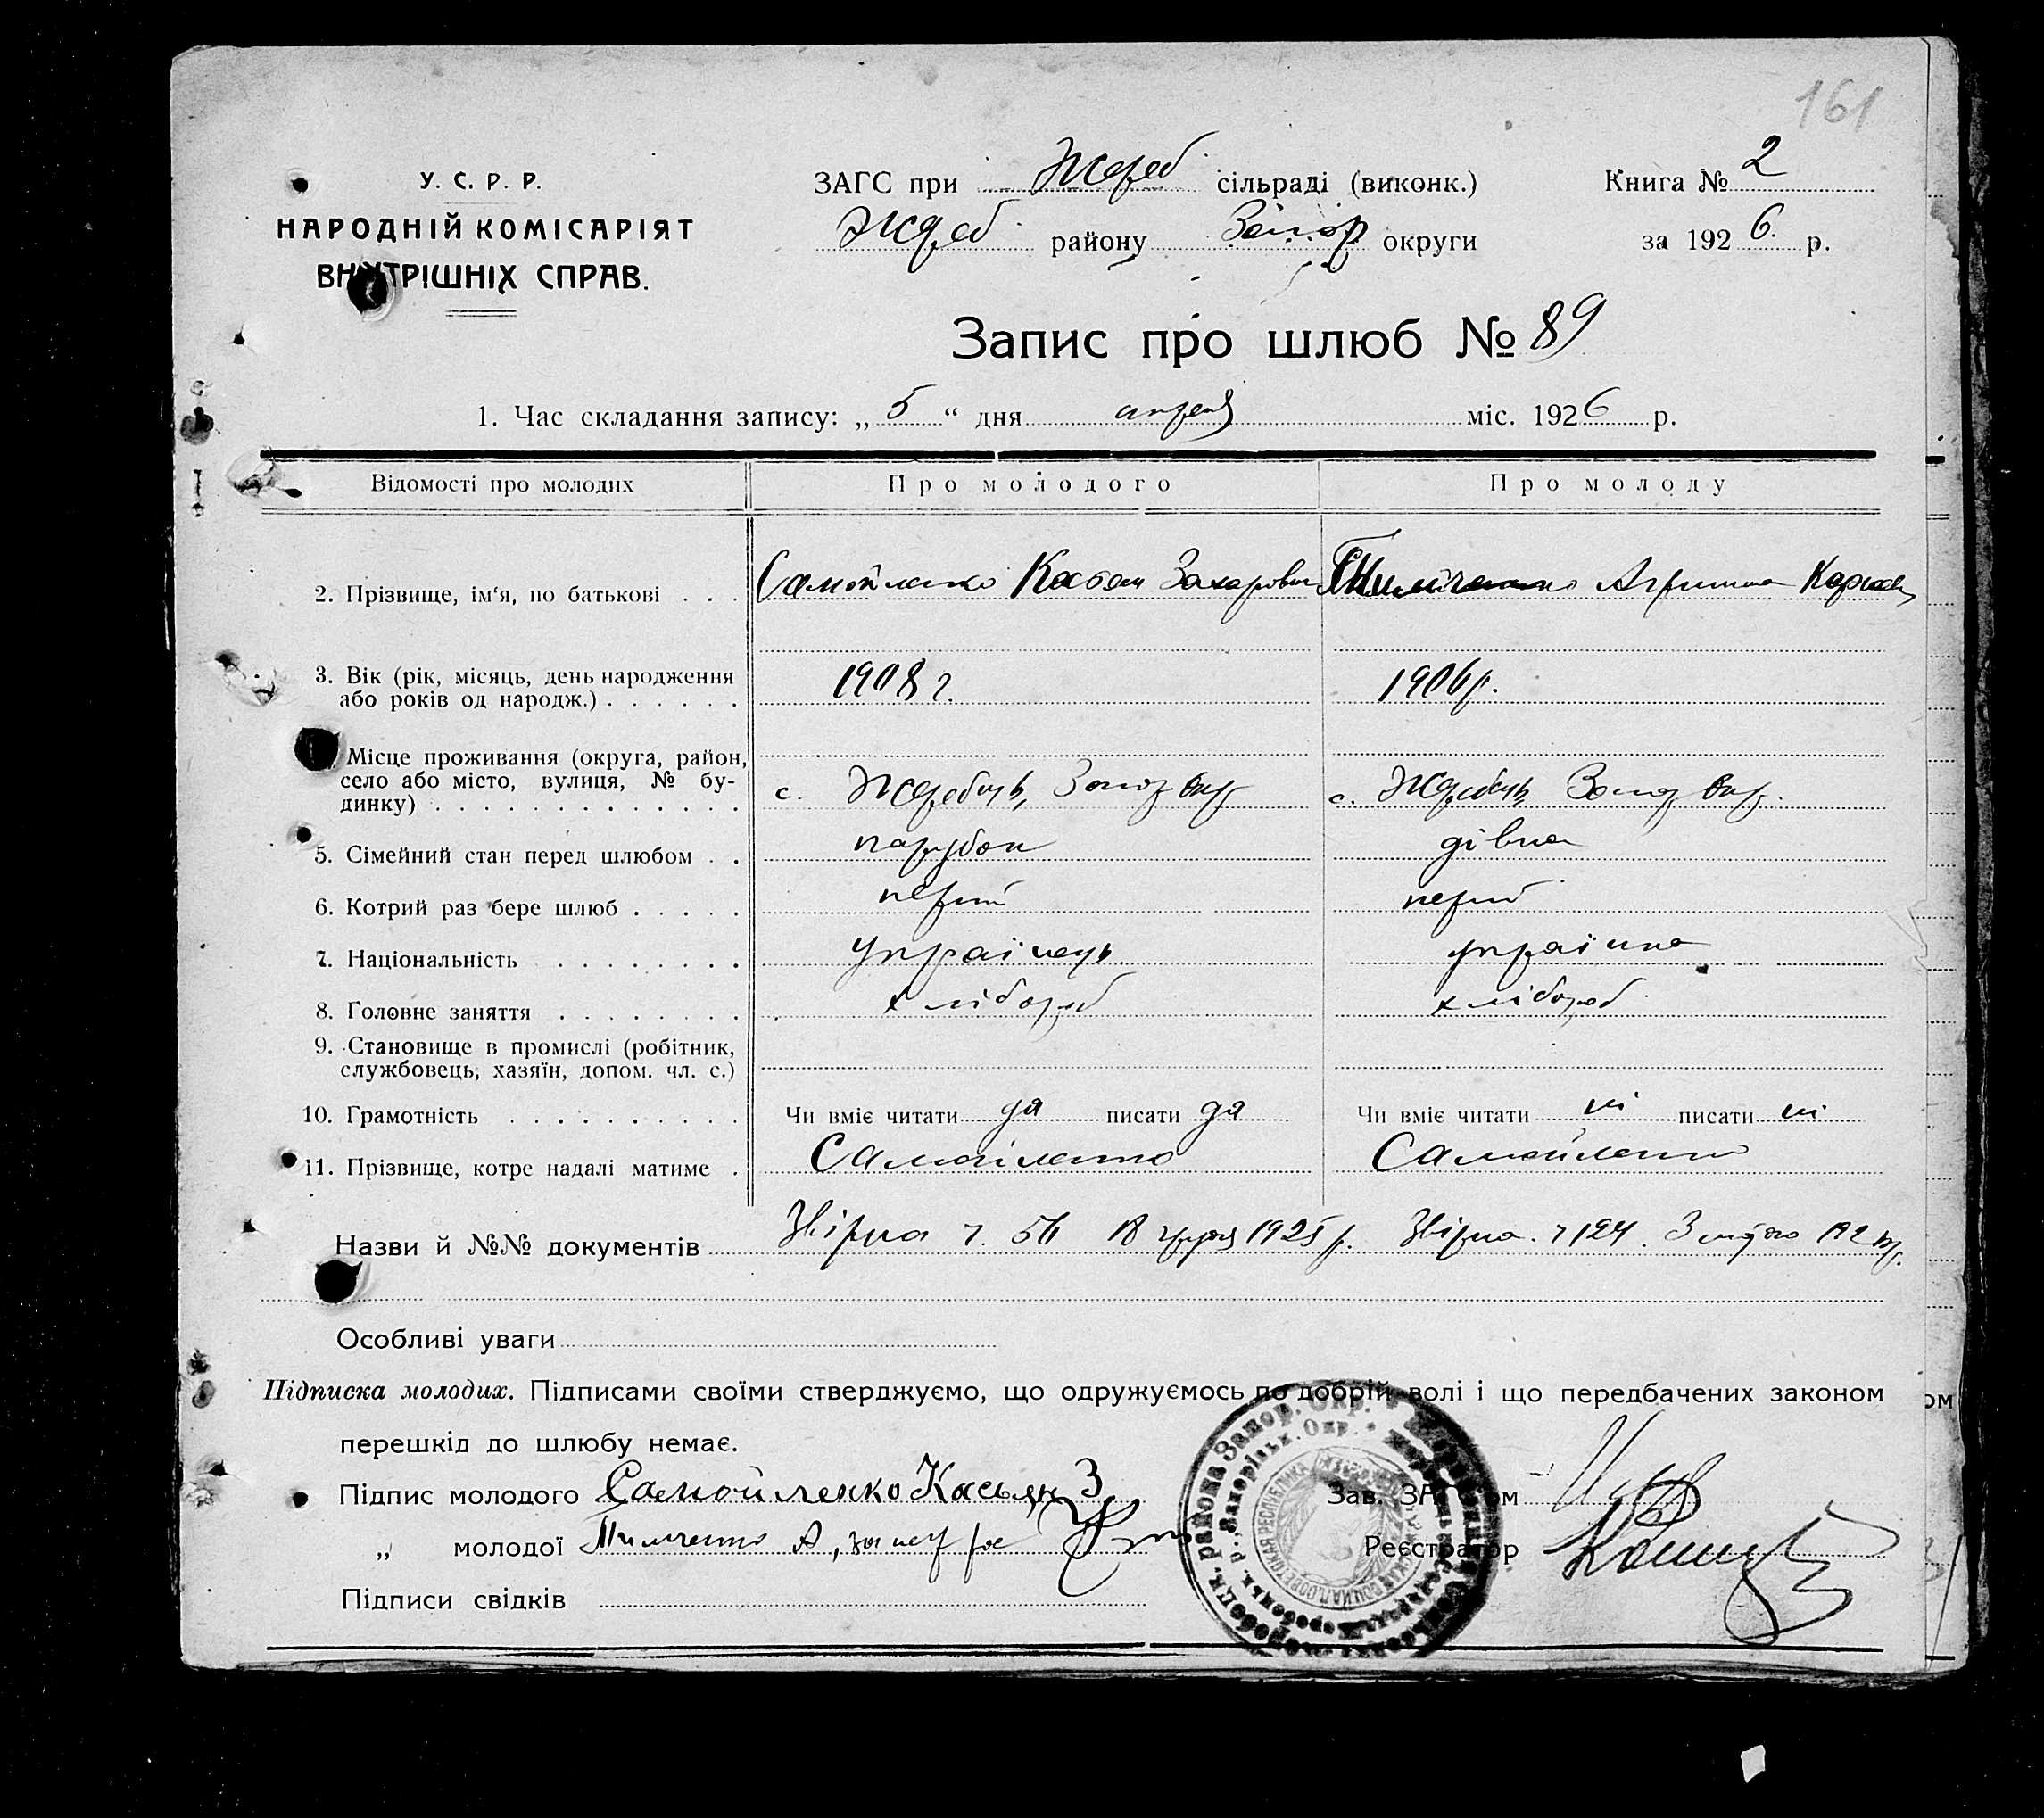 161
У. С. Р. Р.
НАРОДНІЙ КОМІСАРІЯТ
ВНУТРІШНІХ СПРАВ.
ЗАГС при Жереб сільраді (виконк.)
Жереб району Запор округи
Книга № 2
за 1926 р.
Запис про шлюб № 89
1. Час складання запису: „5“ дня апреля міс. 1926 р.
Відомості про молодих Про молодого Про молоду
2. Прізвище, ім‘я, по батькові . . . Самойленко Касьян Захарович Тимченко Агрипина
3. Вік (рік, місяць, день народження
або років од народж.) . . . . . . 1908 г. 1906 р.
Місце проживання (округа, район,
село або місто, вулиця, № бу-
динку) . . . . . . . . . . . . . с. Жеребець, Запор Окр с. Жеребець, Запор Окр.
5. Сімейний стан перед шлюбом . . парубок дівка
6. Котрий раз бере шлюб . . . . . перший перший
7. Національність . . . . . . . . українець українка
8. Головне заняття . . . . . . . . хлібороб хлібороб
9. Становище в промислі (робітник,
службовець, хазяїн, допом. чл. с.)
10. Грамотність . . . . . . . . . . Чи вміє читати да писати да Чи вміє читати ні писати ні
11. Прізвище, котре надалі матиме . Самойленко Самойленко
Назви й №№ документів 18 1925 р. 124. 3 лютого
Особливі уваги
Підписка молодих. Підписами своїми стверджуємо, що одружуємось по добрій волі і що передбачених законом
перешкід до шлюбу немає.
Підпис молодого Самойленко Касьян З
„ молодої Тимченко А,
Зав. ЗАГСом
Реєстратор
Підписи свідків